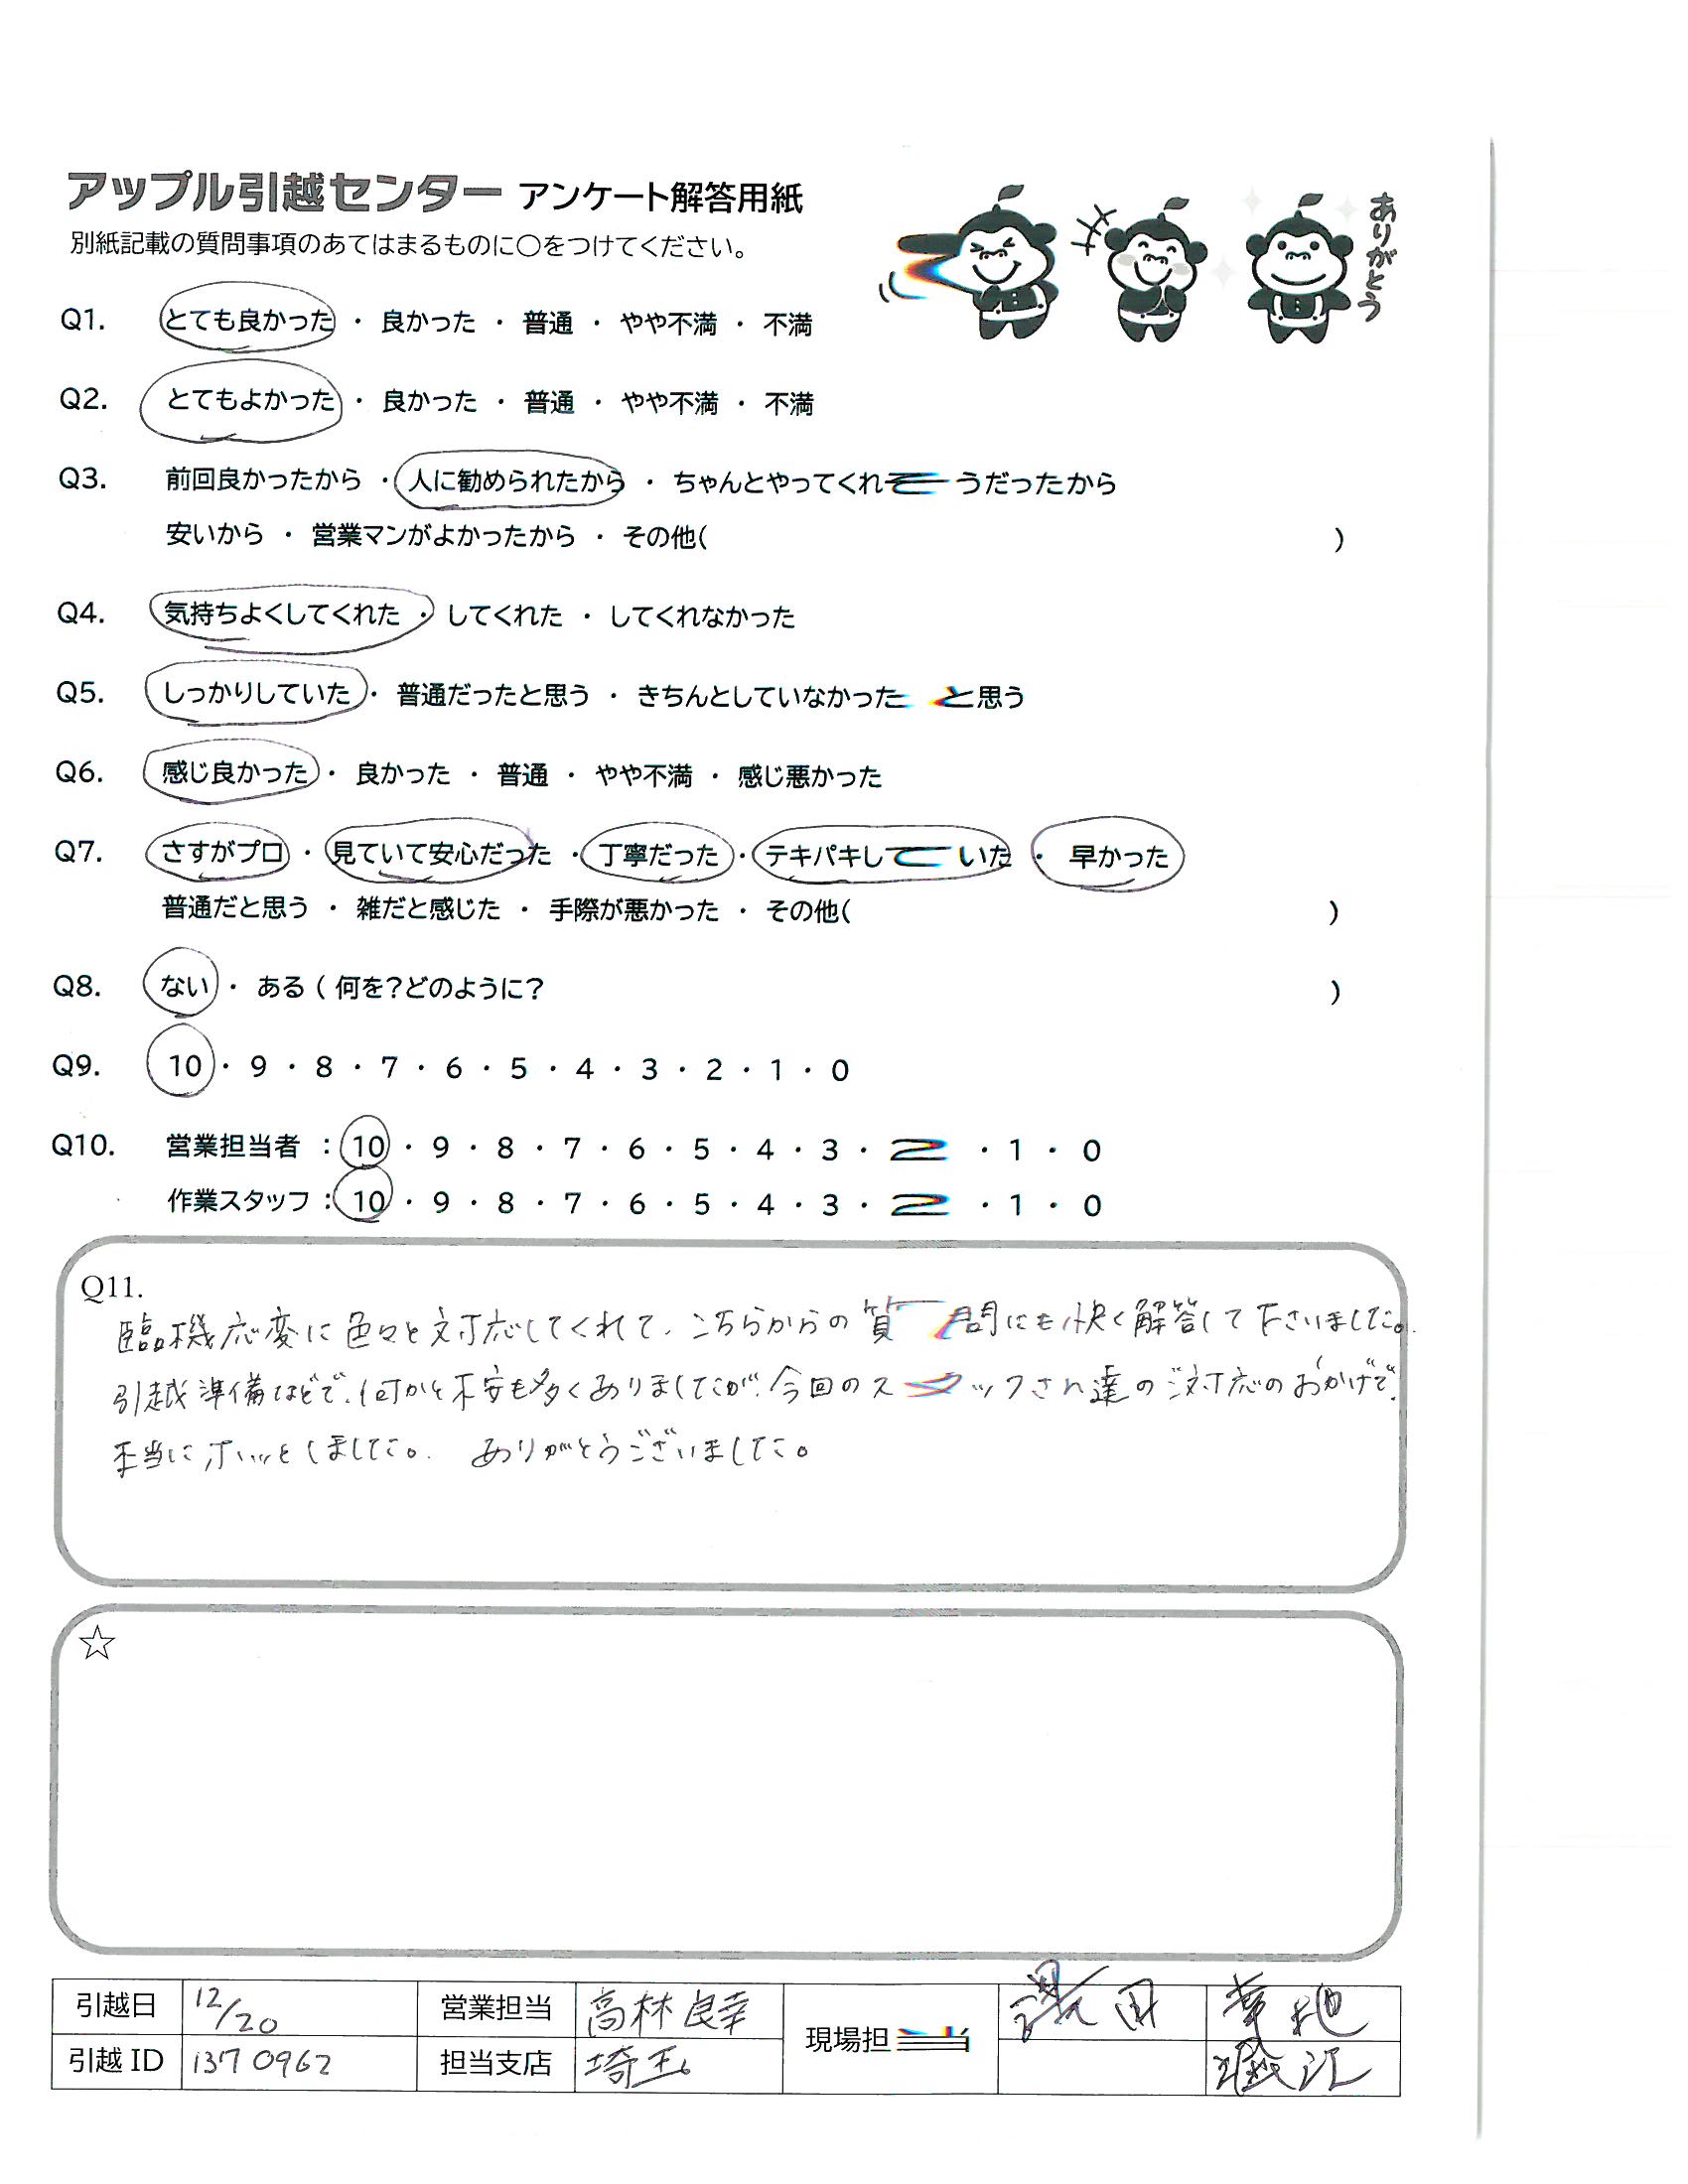 アップル引越センター アンケート解答用紙
別紙記載の質問事項のあてはまるものに○をつけてください。
ありがとう
Q1. とても良かった ・ 良かった ・ 普通 ・ やや不満 ・ 不満
Q2. とてもよかった ・ 良かった ・ 普通 ・ やや不満 ・ 不満
Q3. 前回良かったから ・ 人に勧められたから ・ ちゃんとやってくれそうだったから
安いから ・ 営業マンがよかったから ・ その他( )
Q4. 気持ちよくしてくれた ・ してくれた ・ してくれなかった
Q5. しっかりしていた ・ 普通だったと思う ・ きちんとしていなかったと思う
Q6. 感じ良かった ・ 良かった ・ 普通 ・ やや不満 ・ 感じ悪かった
Q7. さすがプロ ・ 見ていて安心だった ・ 丁寧だった ・ テキパキしていた ・ 早かった
普通だと思う ・ 雑だと感じた ・ 手際が悪かった ・ その他( )
Q8. ない ・ ある ( 何を?どのように? )
Q9. 10 ・ 9 ・ 8 ・ 7 ・ 6 ・ 5 ・ 4 ・ 3 ・ 2 ・ 1 ・ 0
Q10. 営業担当者 : 10 ・ 9 ・ 8 ・ 7 ・ 6 ・ 5 ・ 4 ・ 3 ・ 2 ・ 1 ・ 0
作業スタッフ : 10 ・ 9 ・ 8 ・ 7 ・ 6 ・ 5 ・ 4 ・ 3 ・ 2 ・ 1 ・ 0
Q11.
臨機応変に色々と対応してくれて、こちらからの質問にも快く解答して下さいました。
引越準備などで、何かと不安も多くありましたが、今回のスタッフさん達のご対応のおかげで、
本当にホッとしました。 ありがとうございました。
☆
引越日 12/20 営業担当 高林良幸 現場担当 田
引越ID 1370962 担当支店 埼玉